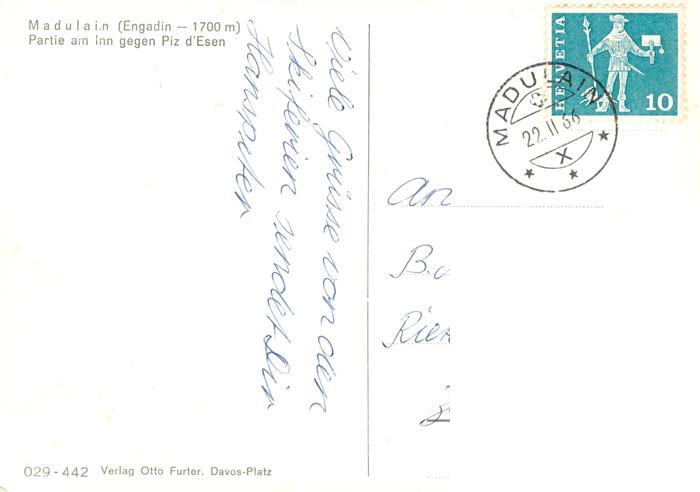 Madulain (Engadin — 1700 m)
Partie am Inn gegen Piz d'Esen
Viele Grüsse von den
Skiferien sendet Dir
Hanspeter
HELVETIA
10
MADULAIN
22.II 66
X
An
B.
Rien
029-442 Verlag Otto Furter, Davos-Platz